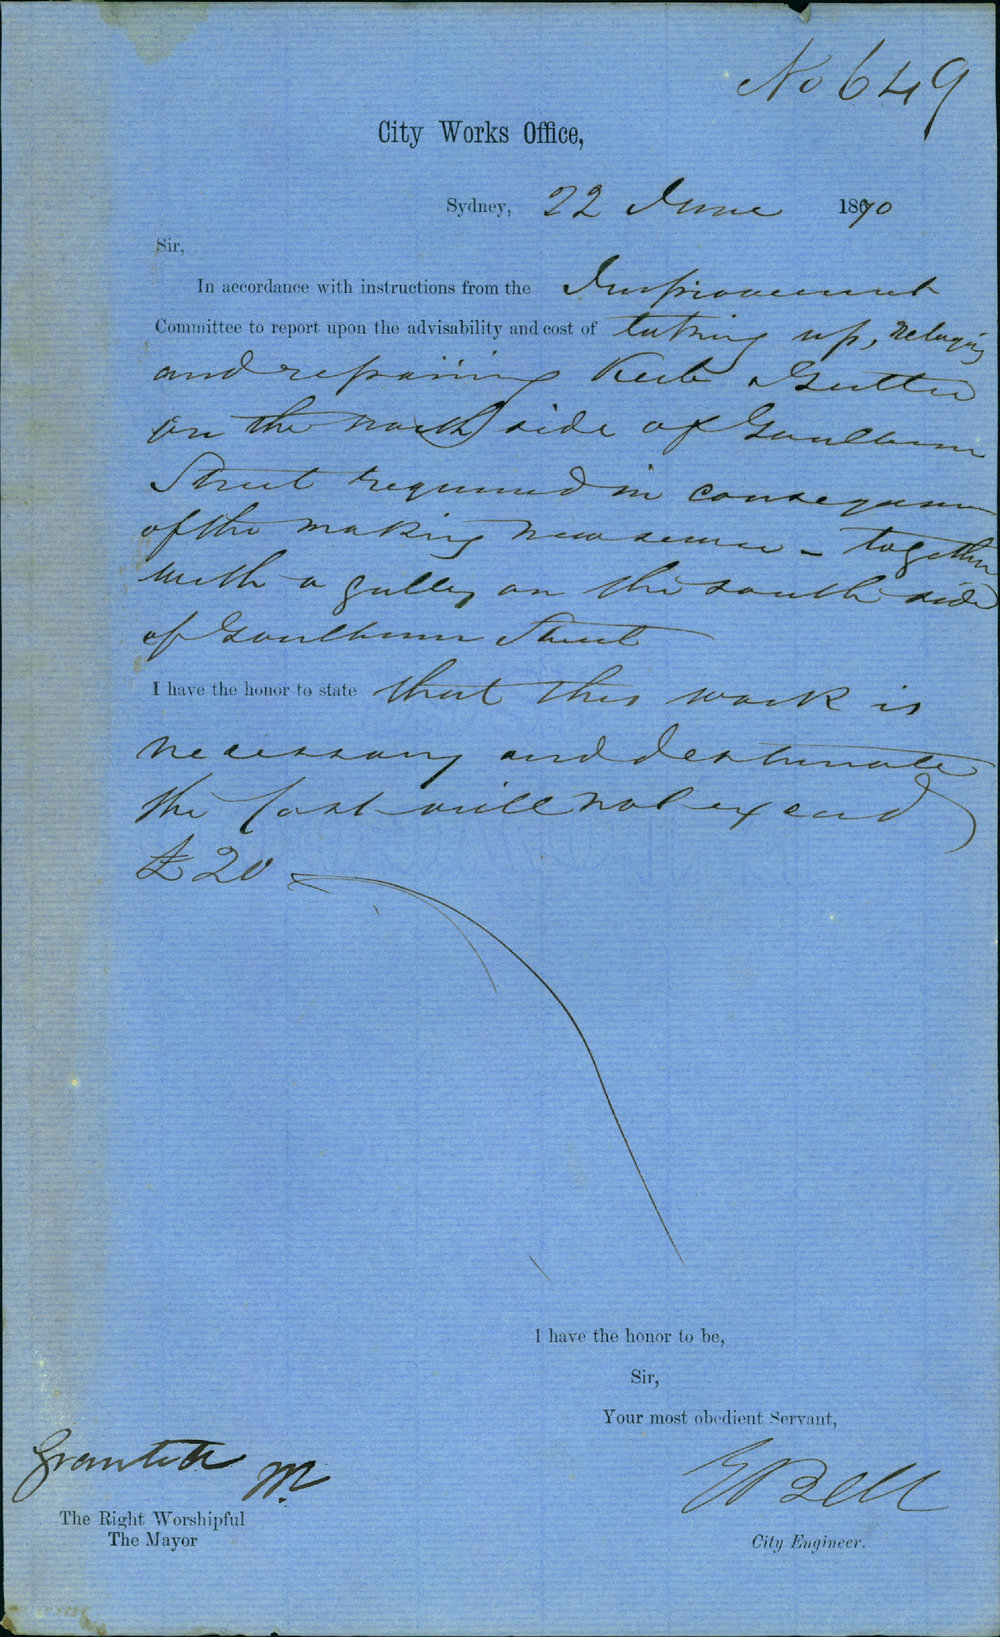 No 649
City Works Office,
Sydney, 22 June 1870
Sir,
In accordance with instructions from the Improvement
Committee to report upon the advisability and cost of taking up, relaying
and repairing Kerb & Gutter
on the north side of Goulburn
Street required in consequence
of the making new sewer - together
with a gulley on the south side
of Goulburn Street
I have the honor to state that this work is
necessary and I estimate
the cost will not exceed
£20
I have the honor to be,
Sir,
Your most obedient Servant,
Granted
M.
E Bell
The Right Worshipful
The Mayor
City Engineer.